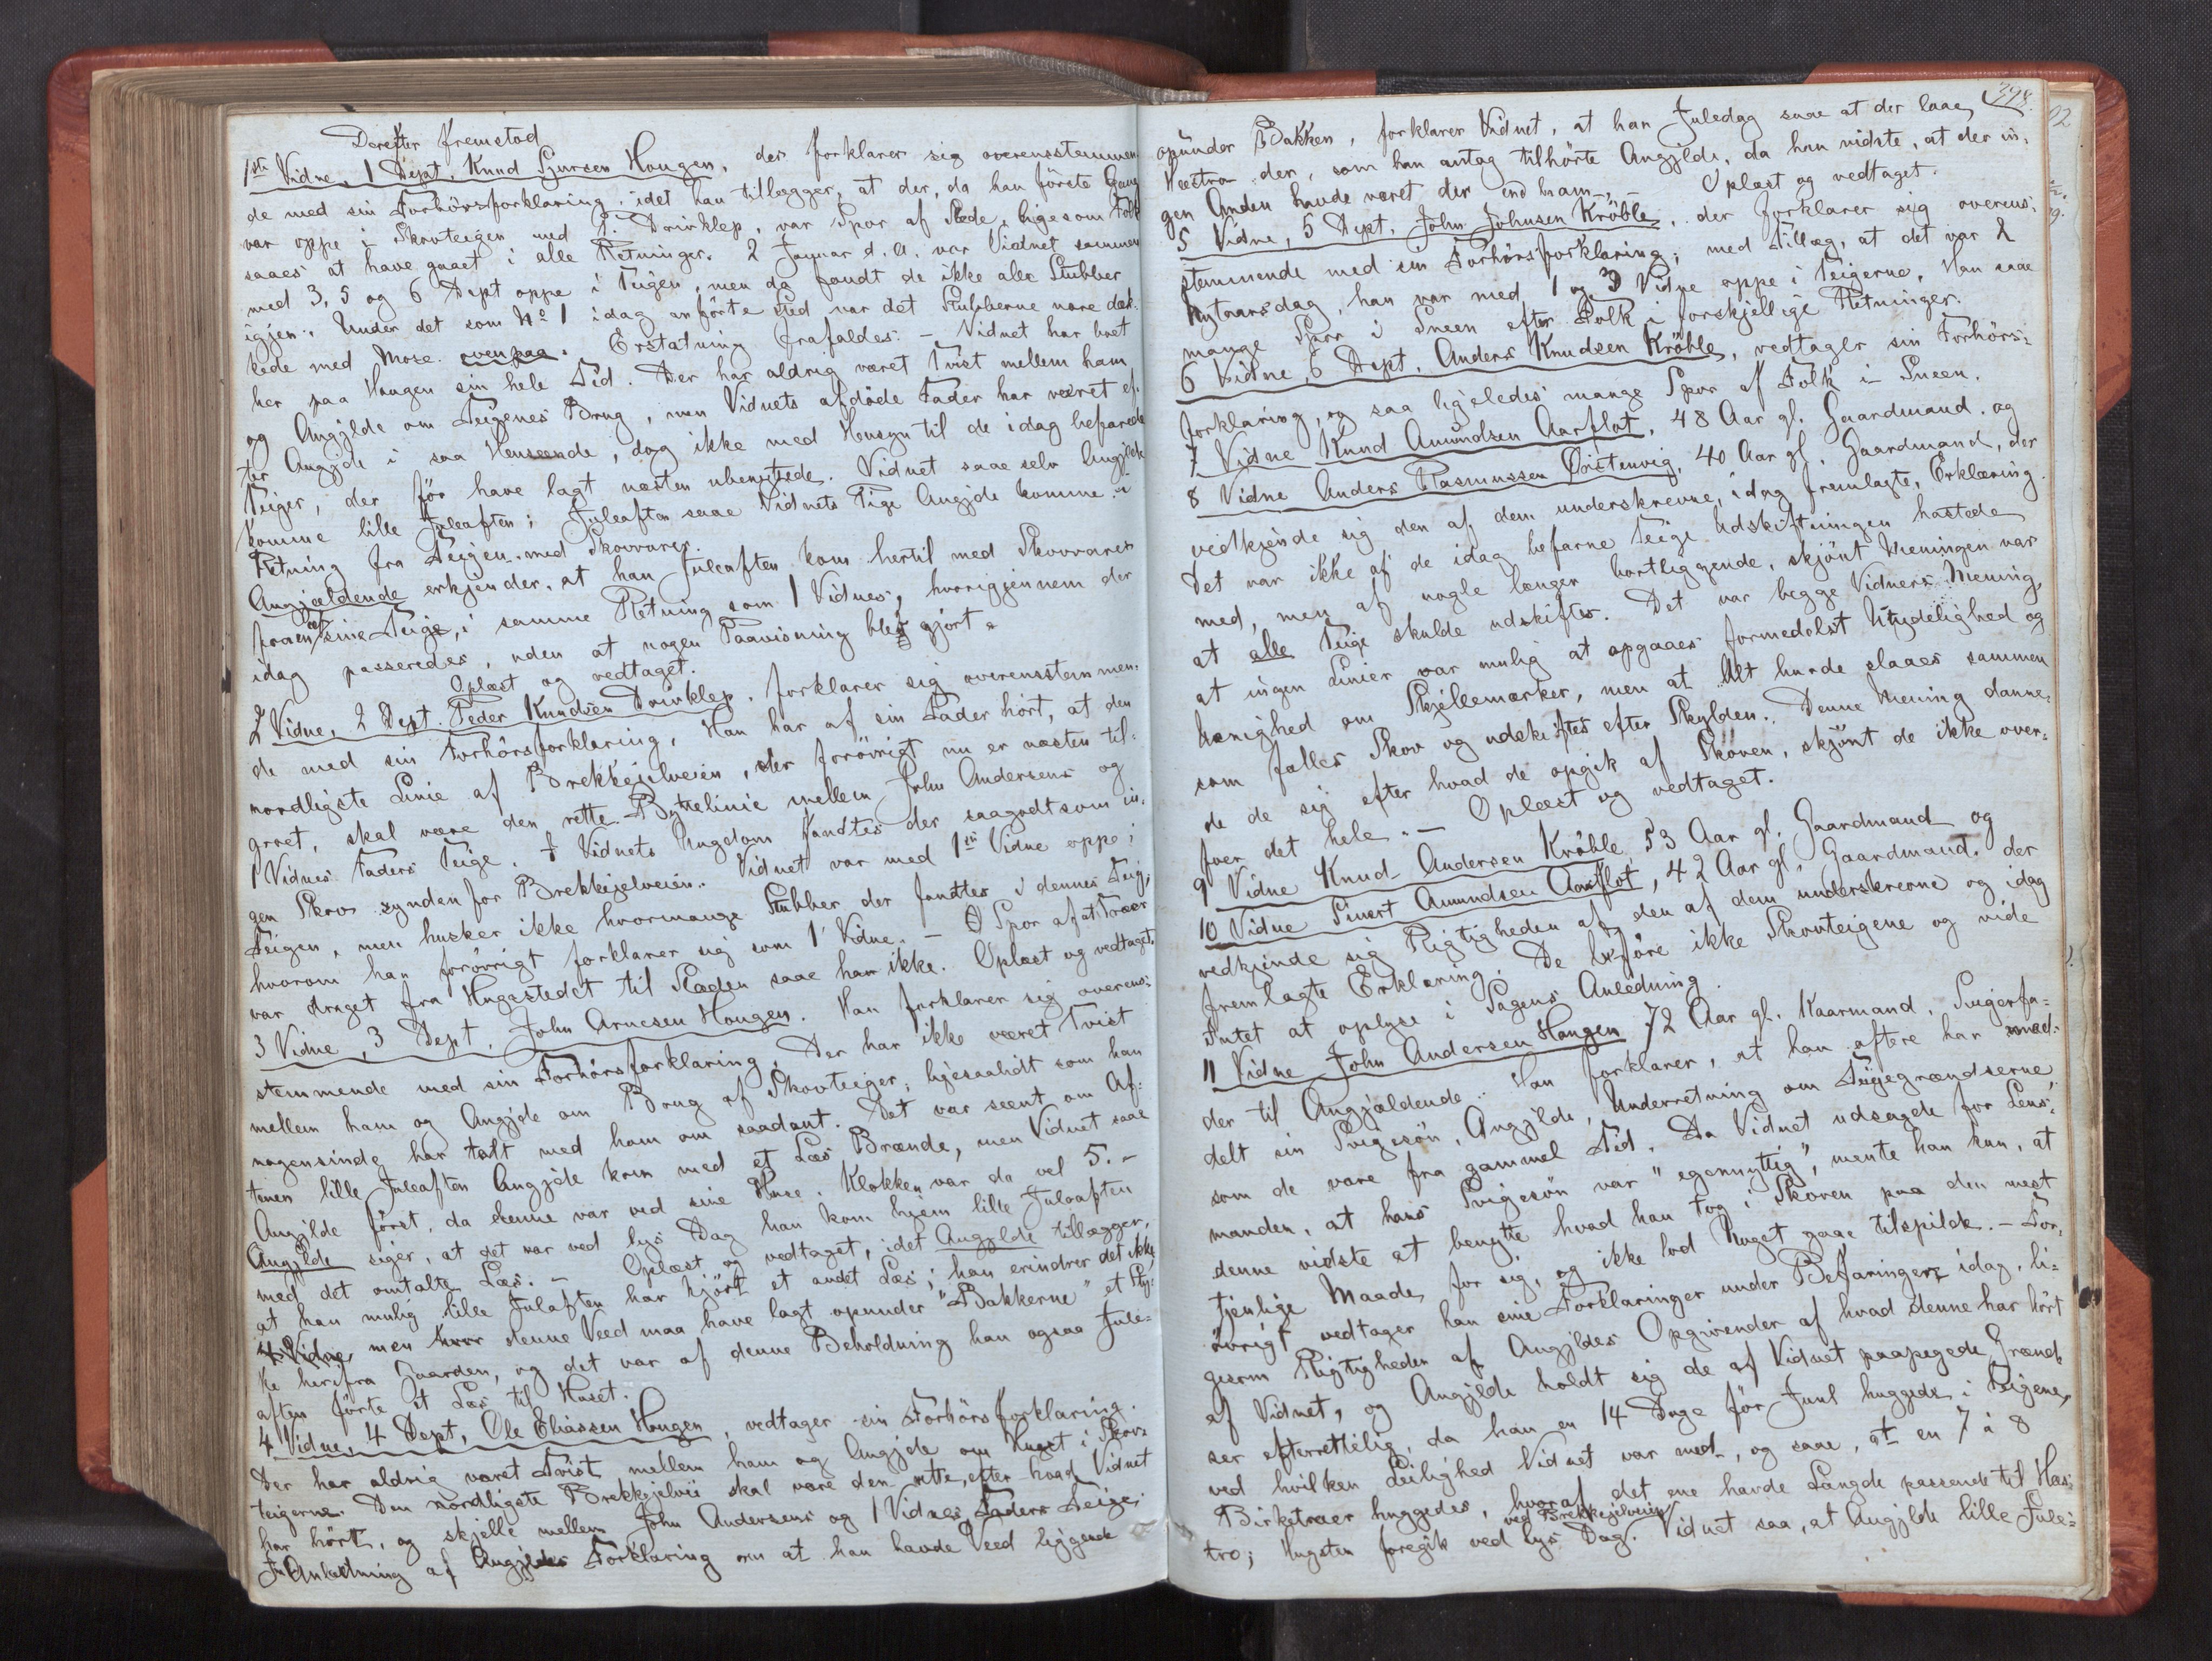 Derefter fremstod
1ste Vidne, 1 Dept. Knud Sjursen Hougen, der forklarer sig overensstemmen-
de med sin Forhörsforklaring, idet han tillægger, at der, da han förste Gang
var oppe i Skovteigen med P. Drivklep, var Spor af Slæde, ligesom Folk
saaes at have gaaet i alle Retninger. 2 Januar d. A. var Vidnet sammen
med 3, 5 og 6 Dept oppe i Teigen, men da fandt de ikke alle Stubber
igjen. Under det som No 1 idag anförte Sted var det Stubberne vare dæk-
kede med Mose ovenpaa. Erstatning frafaldes. – Vidnet har boet
her paa Hougen sin hele Tid. Der har aldrig været Tvist mellem ham
og Angjelde om Teigenes Brug, men Vidnets afdöde Fader har været ef-
ter Angjde i saa Henseende, dog ikke med Hensyn til de idag befarede
Teiger, der för have lagt næsten ubenyttede. Vidnet saae selv Angjelde
komme lille Juleaften; Juleaften saae Vidnets Pige Angjde komme i
Retning fra Teigen med Skovvarer.
Angjældende erkjender, at han Juleaften kom hertil med Skovvarer
fra en af sine Teige, i samme Retning som 1 Vidnes, hvorigjennem der
idag passeredes, uden at nogen Paavisning blev gjort.
Oplæst og vedtaget.
2 Vidne, 2 Dept. Peder Knudsen Drivklep, forklarer sig overensstemmen-
de med sin Forhörsforklaring, Han har af sin Fader hört, at den
nordligste Linie af Brekkejelveien, der forövrigt nu er næsten til-
groet, skal være den rette Byttelinie mellem John Andersens og
1 Vidnes Faders Teige. I Vidnets Ungdom fandtes der saagodtsom in-
gen Skov synden for Brekkejelveien. Vidnet var med 1ste Vidne oppe i
Teigen, men husker ikke hvormange Stubber der fandtes i dennes Teig,
hvorom han forövrigt forklarer sig som 1 Vidne. – Spor af at Træer
var draget fra Hugstedet til Slæden saae han ikke. Oplæst og vedtaget.
3 Vidne, 3 Dept, John Arnesen Hougen. Han forklarer sig overens-
stemmende med sin Forhörsforklaring. Der har ikke været Tvist
mellem ham og Angjde om Brug af Skovteiger, ligesaalidt som han
nogensinde har talt med ham om saadant. Det var seent om Af-
tenen lille Juleaften Angjde kom med et Læs Brænde, men Vidnet saae
Angjlde först, da denne var ved sine Huse. Klokken var da vel 5. –
Angjlde siger, at det var ved lys Dag han kom hjem lille Juleaften
med det omtalte Læs. – Oplæst og vedtaget, idet Angjlde tillægger,
at han mulig lille Juleaften har hjört et andet Læs; han erindrer det ikke,
4 Vidne, men hvor denne Veed maa have lagt opunder "Bakkerne" et Styk-
ke herifra Gaarden, og det var af denne Beholdning han ogsaa Jule-
aften förte et Læs til Huset.
4 Vidne, 4 Dept, Ole Eliassen Hougen, vedtager sin Forhörsforklaring.
Der har aldrig været Tvist mellem ham og Angjde om Huget i Skov-
teigerne. Den nordligste Brekkejelvei skal være den rette, efter hvad Vidnet
har hört, og skjelle mellem John Andersens og 1 Vidnes Faders Teige.
I Anledning af Angjldes Forklaring om at han havde Veed liggende
398.
opunder Bakken, forklarer Vidnet, at han Juledag saae at der laae
der, som han antog tilhörte Angjlde, da han vidste, at der in-
gen Anden havde været der end ham. – Oplæst og vedtaget.
5 Vidne, 5 Dept. John Johnsen Kröble, der forklarer sig overens-
stemmende med sin Forhörsforklaring, med Tillæg, at det var 2
Nytaarsdag, han var med 1 og 3 Vidne oppe i Teigerne. Han saae
mange Spor i Sneen efter Folk i forskjellige Retninger.
6 Vidne, 6 Dept. Anders Knudsen Kröble, vedtager sin Forhörs-
forklaring, og saa ligeledes mange Spor af Folk i Sneen.
7 Vidne Knud Amundsen Aarflot, 48 Aar gl. Gaardmand, og
8 Vidne Anders Rasmussen Östenvig, 40 Aar gl, Gaardmand, der
vedkjende sig den af dem underskrevne, idag fremlagte, Erklæring.
Det var ikke af de idag befarne Teige Udskiftningen hastede
med, men af nogle længer bortliggende, skjönt Meningen var
at alle Teige skulde udskiftes. Det var begge Vidners Mening,
at ingen Linier var mulig at opgaaes formedelst Utydelighed og
Uenighed om Skjellemærker, men at Alt burde slaaes sammen
som fælles Skov og udskiftes efter Skylden. Denne Mening danne-
de de sig efter hvad de opgik af Skoven, skjönt de ikke over-
foer det hele. – Oplæst og vedtaget.
9 Vidne Knud Andersen Kröble 53 Aar gl. Gaardmand og
10 Vidne Sivert Amundsen Aarflot, 42 Aar gl, Gaardmand, der
vedkjende sig Rigtigheden af den af dem underskrevne og idag
fremlagte Erklæring. De beföre ikke Skovteigene og vide
Intet at oplyse i Sagens Anledning.
11 Vidne John Andersen Hougen 72 Aar gl. Kaarmand, Svigerfa-
der til Angjældende. Han forklarer, at han oftere har med-
delt sin Svigesön, Angjlde, Underretning om Teigegrændserne,
som de vare fra gammel Tid. Da Vidnet udsagde for Lens-
manden, at hans Svigesön var "egennyttig", mente han kun, at
denne vidste at benytte hvad han tog i Skoven paa den mest
tjenlige Maade for sig, og ikke lod Noget gaae tilspilde. – For-
övrigt vedtager han sine Forklaringer under Befaringen idag, li-
gesom Rigtigheden af Angjldes Opgivender af hvad denne har hört
af Vidnet, og Angjlde holdt sig de af Vidnet paapegede Grænd-
ser efterrettelig, da han en 14 Dage för Juul huggede i Teigene,
ved hvilken Leilighed Vidnet var med, og saae, at en 7 à 8
Birketræer huggedes, hvoraf det ene havde Længde passende til
tro; Hugsten foregik ved Brekkejelveien ved lys Dag. Vidnet saa, at Angjlde lille Jule-